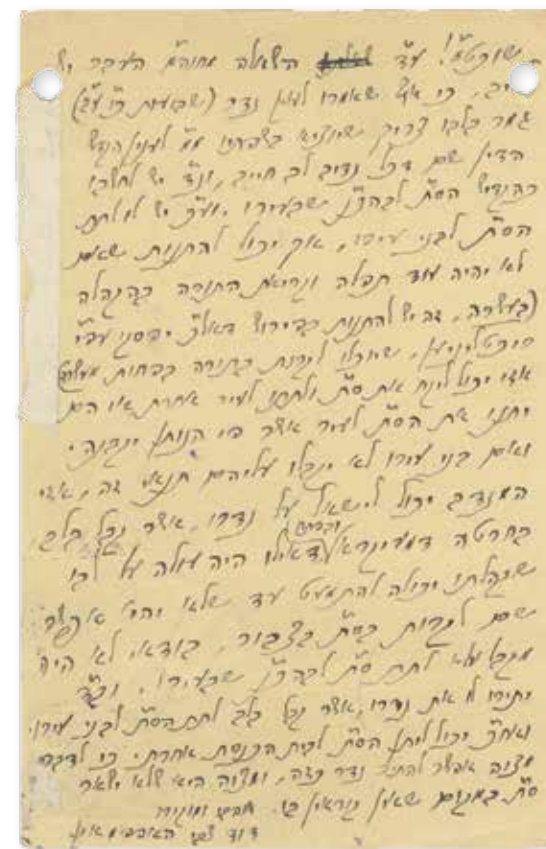 שוכט"ס! ע"ד השאלה מחוה"מ העבר יש
כי אף שאמרו לענין נדר (שבועות כ"ו ע"ב)
גמר בלבו צריך שיוציא בשפתיו מ"מ לענין הקדש
הדין שם דכל נדיב לב חייב, וצ"ל יש לחשבו
כהקדיש הס"ת לבהכ"נ שבעירו. וע"כ יש לו לתת
הס"ת לבני עירו, אך יכול להתנות שאם
לא יהיה עוד תפלה וקריאת התורה בהקהלה
(בעשרה, זה יש להתנות בפירוש דאל"כ יפסקו עפ"י
שיוכלו לקרות בתורה בפחות מעשרה)
אזי יכול ליקח את ס"ת וליתנו לעיר אחרת או הם
יתנו את הס"ת לעיר אשר פי הנותן יקבנה.
ואם בני עירו לא יקבלו עליהם תנאי זה, אזי
המנדב יכול לישאל על נדרו, אשר קבל בלב
בחרטה דמעיקרא ובפתח דאילו היה עולה על לבו
שקהלתו יכולה להתמעט עד שלא יהי' אפשר
שם לקרות בס"ת בצבור, בודאי לא היה
מקבל עליו לתת ס"ת לבהכ"נ שבעירו,
יתירו לו את נדרו, אשר קבל בלב לתת הס"ת לבני עירו
ואח"כ יכול ליתן הס"ת לבית הכנסת אחרת. כי לדבר
מצוה אפשר להתיר נדר כזה, ומצוה היא שלא ישאר
ס"ת במקום שאין קוראין בו.
דוד צבי האפפמאנן